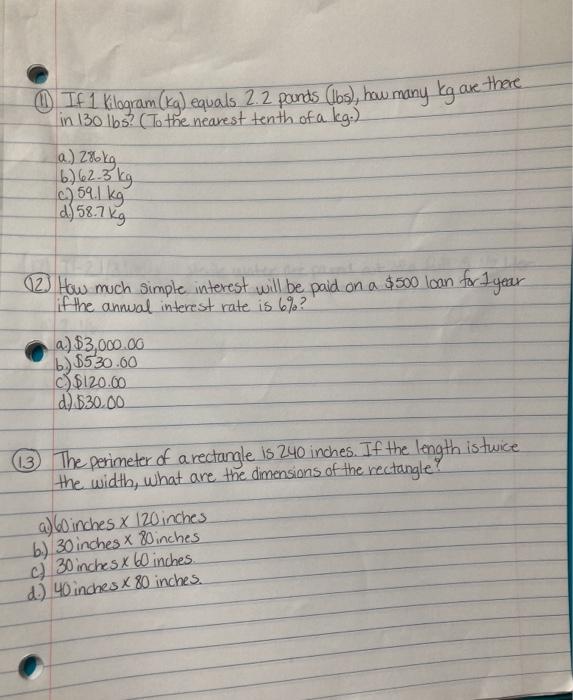 (11) If 1 kilogram (kg) equals 2.2 pounds (lbs), how many kg are there
in 130 lbs? (To the nearest tenth of a kg.)
a.) 286 kg
b.) 62.3 kg
c.) 59.1 kg
d.) 58.7 kg
(12) How much simple interest will be paid on a $500 loan for 1 year
if the annual interest rate is 6%?
a.) $3,000.00
b.) $530.00
c.) $120.00
d.) $30.00
(13) The perimeter of a rectangle is 240 inches. If the length is twice
the width, what are the dimensions of the rectangle?
a.) 60 inches x 120 inches
b.) 30 inches x 80 inches
c.) 30 inches x 60 inches
d.) 40 inches x 80 inches.